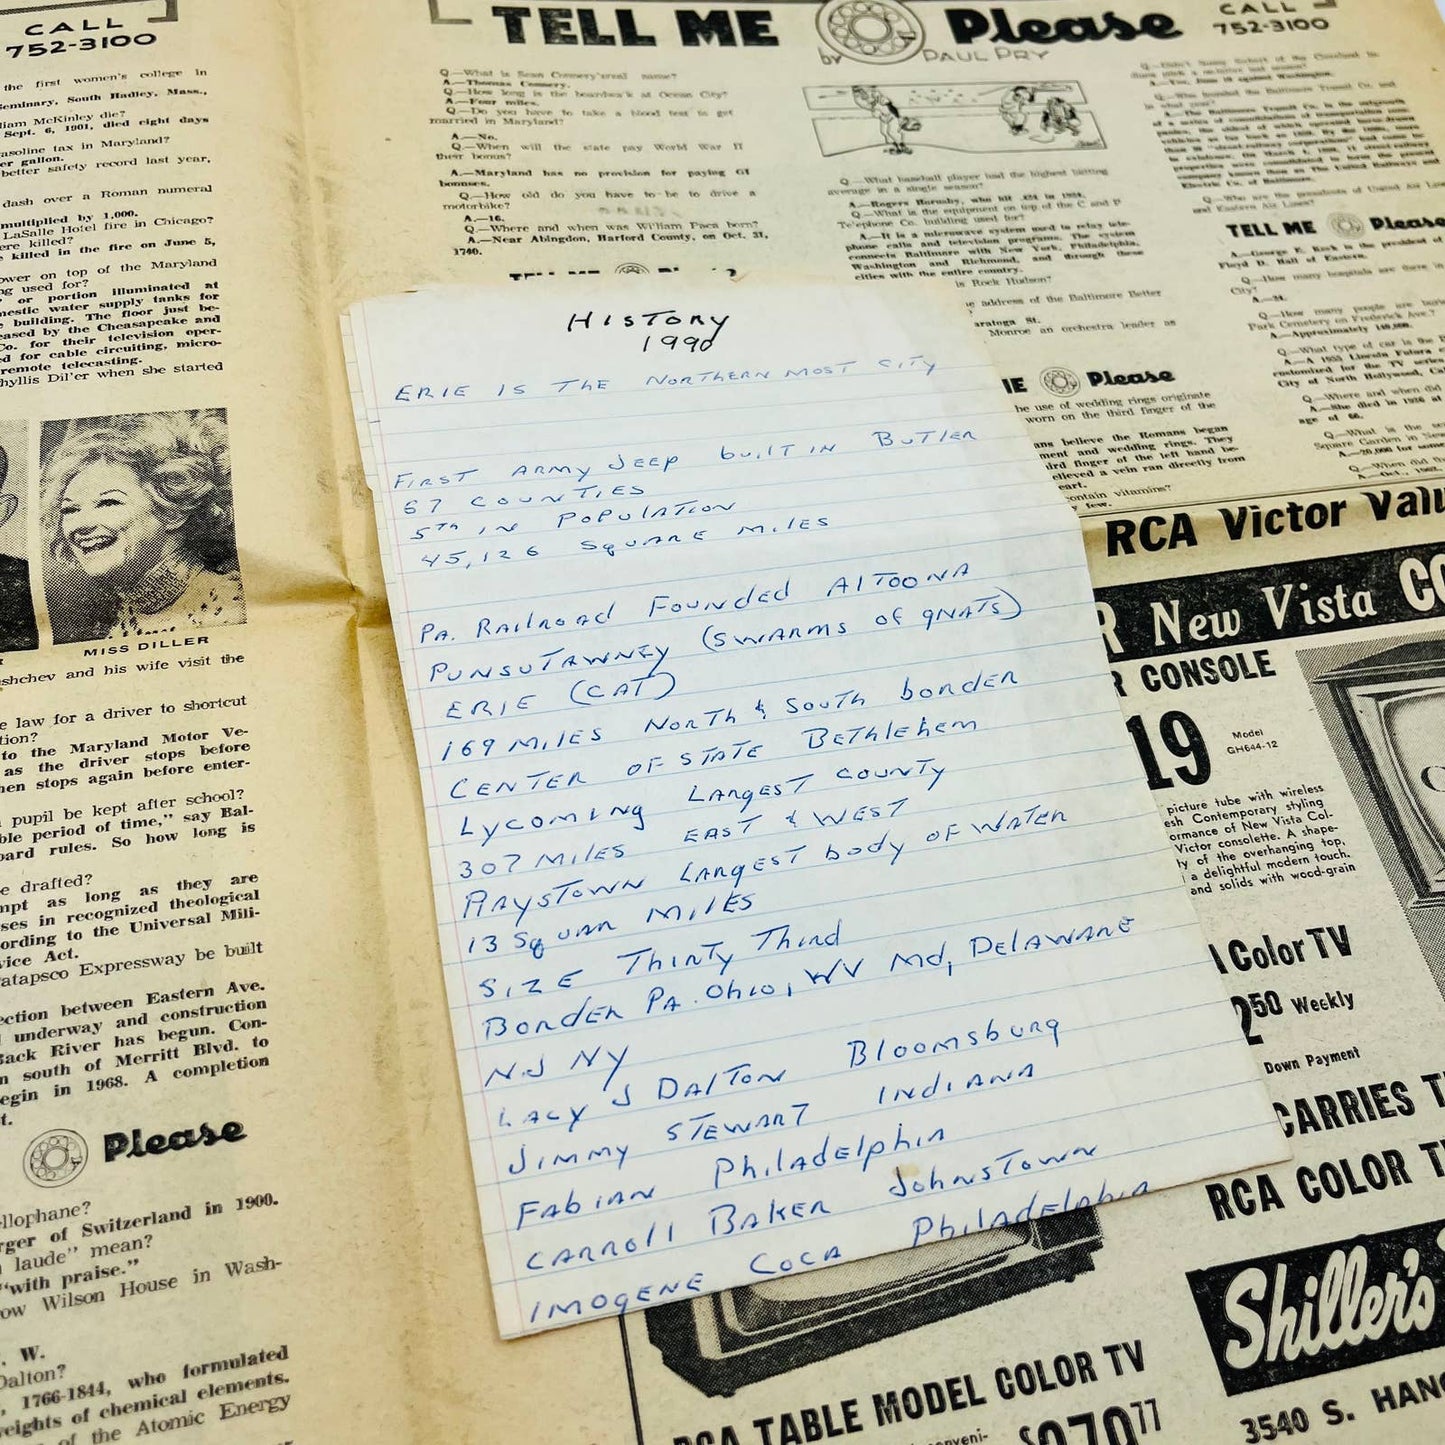 CALL
752-3100
the first women's college in
Seminary, South Hadley, Mass.,
William McKinley die?
Sept. 6, 1901, died eight days
gasoline tax in Maryland?
per gallon.
better safety record last year,
dash over a Roman numeral
multiplied by 1,000.
LaSalle Hotel fire in Chicago?
were killed?
killed in the fire on June 5,
tower on top of the Maryland
used for?
or portion illuminated at
domestic water supply tanks for
building. The floor just be-
leased by the Cheasapeake and
Co. for their television oper-
for cable circuiting, micro-
remote telecasting.
Phyllis Dil'er when she started
MISS DILLER
and his wife visit the
law for a driver to shortcut
to the Maryland Motor Ve-
as the driver stops before
then stops again before enter-
pupil be kept after school?
period of time," say Bal-
board rules. So how long is
be drafted?
as long as they are
in recognized theological
according to the Universal Mili-
Service Act.
Patapsco Expressway be built
section between Eastern Ave.
underway and construction
Back River has begun. Con-
south of Merritt Blvd. to
begin in 1968. A completion
Please
cellophane?
of Switzerland in 1900.
laude" mean?
"with praise."
Woodrow Wilson House in Wash-
W.
Dalton?
1766-1844, who formulated
weights of chemical elements.
of the Atomic Energy
TELL ME Please
by PAUL PRY
CALL
752-3100
Q.—What is Sean Connery's real name?
A.—Thomas Connery.
Q.—How long is the boardwalk at Ocean City?
A.—Four miles.
Q.—Do you have to take a blood test to get
married in Maryland?
A.—No.
Q.—When will the state pay World War II
their bonus?
A.—Maryland has no provision for paying GI
bonuses.
Q.—How old do you have to be to drive a
motorbike?
A.—16.
Q.—Where and when was William Paca born?
A.—Near Abingdon, Harford County, on Oct. 31,
1740.
TELL ME Please
Q.—What baseball player had the highest batting
average in a single season?
A.—Rogers Hornsby, who hit .424 in 1924.
Q.—What is the equipment on top of the C and P
Telephone Co. building used for?
A.—It is a microwave system used to relay tele-
phone calls and television programs. The system
connects Baltimore with New York, Philadelphia,
Washington and Richmond, and through these
cities with the entire country.
is Rock Hudson?
address of the Baltimore Better
Saratoga St.
Monroe an orchestra leader as
ME Please
the use of wedding rings originate
worn on the third finger of the
believe the Romans began
and wedding rings. They
third finger of the left hand be-
believed a vein ran directly from
heart.
contain vitamins?
few.
Electric Co. of Baltimore.
Q.—Who are the presidents of United Air Lines
and Eastern Air Lines?
TELL ME Please
A.—George E. Keck is the president of
Floyd D. Hall of Eastern.
Q.—How many hospitals are there in
City?
Q.—How many people are buried
Park Cemetery on Frederick Ave.?
A.—Approximately 140,000.
Q.—What type of car is the
A.—A 1955 Lincoln Futura
customized for the TV series
City of North Hollywood,
Q.—Where and when did
A.—She died in 1926 at
age of 66.
Square Garden in New
HISTORY
1990
ERIE IS THE NORTHERN MOST CITY
FIRST ARMY JEEP buiLT IN BUTLER
67 COUNTIES
5TH IN POPULATION
45,126 SQUARE MILES
PA. RAILROAD FOUNDED ALTOONA
PUNSUTAWNEY (SWARMS OF GNATS)
ERIE (CAT)
169 MILES NORTH & SOUTH bORDER
CENTER OF STATE BETHLEHEM
LYCOMING LARGEST COUNTY
307 MILES EAST & WEST
RAYSTOWN LARGEST body OF WATER
13 SQUAR MILES
SIZE THIRTY THIRD
BORDER PA. OHIO, WV Md, DELAWARE
N.J NY
LACY J DALTON BLOOMSBURG
JIMMY STEWART INDIANA
FABIAN PHILADELPHIA
CARROLL BAKER JOHNSTOWN
IMOGENE COCA PHILADELPHIA
RCA Victor Valu
R New Vista CO
R CONSOLE
19
Model
GH644-12
picture tube with wireless
Contemporary styling
of New Vista Col-
Victor consolette. A shape-
of the overhanging top,
a delightful modern touch.
and solids with wood-grain
Color TV
2.50 Weekly
Down Payment
CARRIES T
RCA COLOR T
RCA TABLE MODEL COLOR TV
77
Shiller's
3540 S. HANO